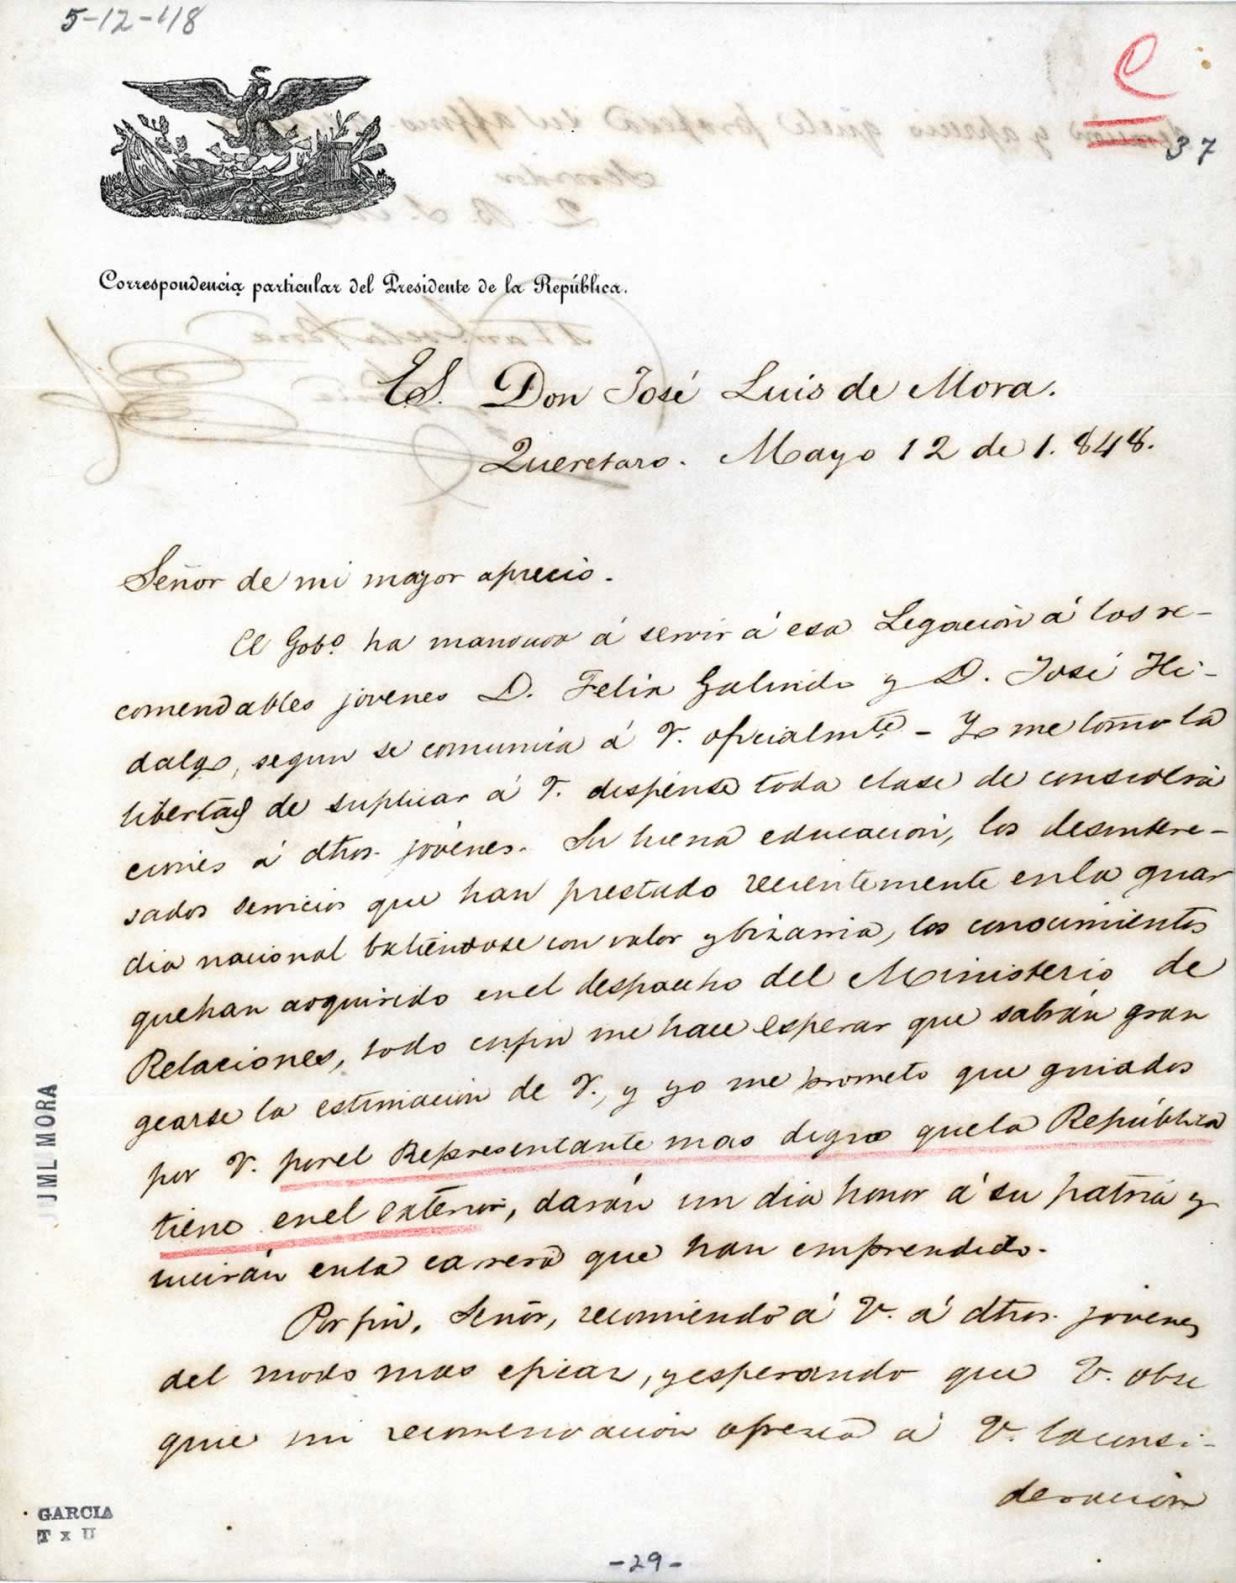 5-12-48
C
37
Correspondencia particular del Presidente de la República.
E.S. Don José Luis de Mora.
Queretaro. Mayo 12 de 1.848.
Señor de mi mayor aprecio.
El Gobo. ha mandado á servir á esa Legacion á los re-
comendables jovenes D. Felix Galindo y D. José Hi-
dalgo, segun se comunica á V. oficialmte. - Yo me tomo la
libertad de suplicar á V. dispense toda clase de considera
ciones á dhos. jóvenes. Su buena educacion, los desintere-
sados servicios que han prestado recientemente en la guar
dia nacional batiendose con valor y bizarria, los conocimientos
que han adquirido en el despacho del Ministerio de
Relaciones, todo en fin me hace esperar que sabrán gran
gearse la estimacion de V., y yo me prometo que guiados
por V. por el Representante mas digno que la República
tiene en el exterior, darán un dia honor á su patria y
lucirán en la carrera que han emprendido.
Por fin, Señor, recomiendo á V. á dhos. jovenes
del modo mas eficaz, y esperando que V. obse
quie mi recomendacion ofrezco á V. la consi-
deracion
JML MORA
GARCIA
T x U
-29-